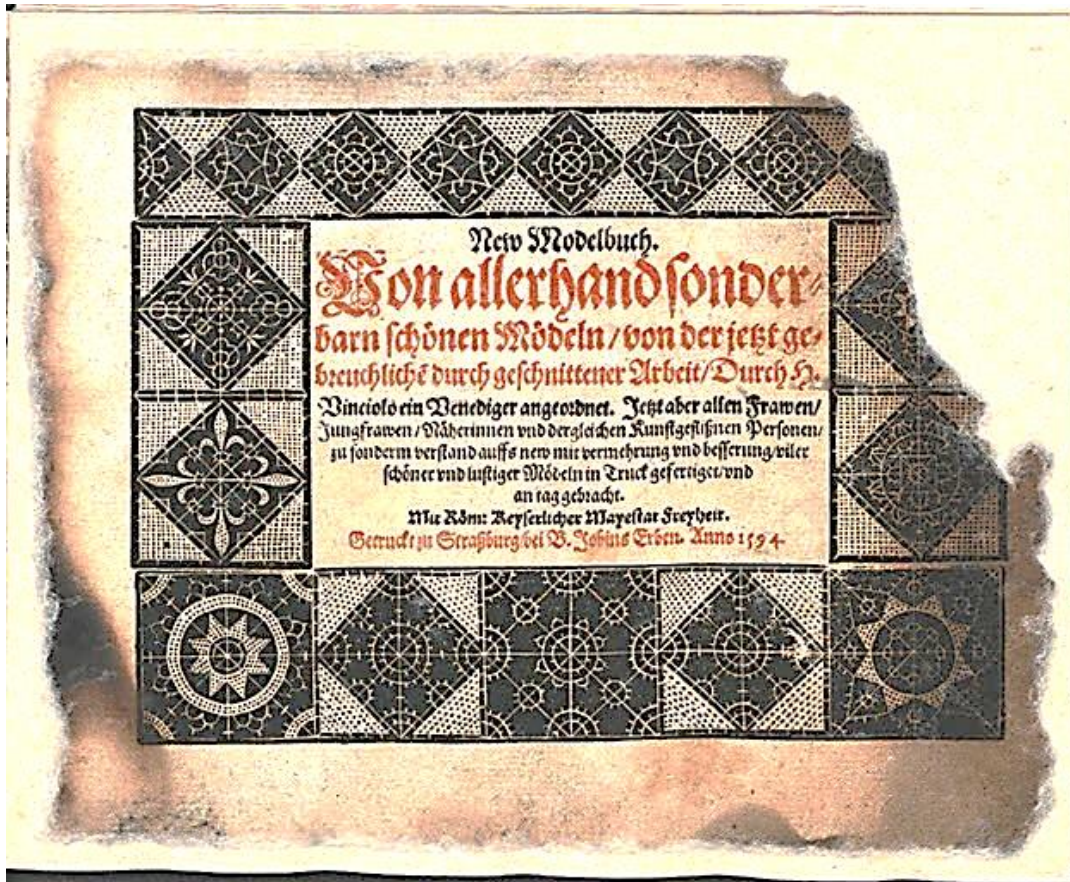 New Modelbuch.
Von allerhand sonder-
barn schönen Mödeln / von der jetzt ge-
breuchlichē durch geschnittener Arbeit / Durch H.
Vinciolo ein Venediger angeordnet. Jetzt aber allen Frawen /
Jungfrawen / Näherinnen vnd dergleichen Kunstgeflißnen Personen /
zu sonderm verstand auffs new mit vermehrung vnd besserung / viler
schöner vnd lustiger Mödeln in Truck gefertiget / vnd
an tag gebracht.
Mit Röm: Keyserlicher Mayestat Freyheit.
Getruckt zu Straßburg bei B. Jobins Erben. Anno 1594